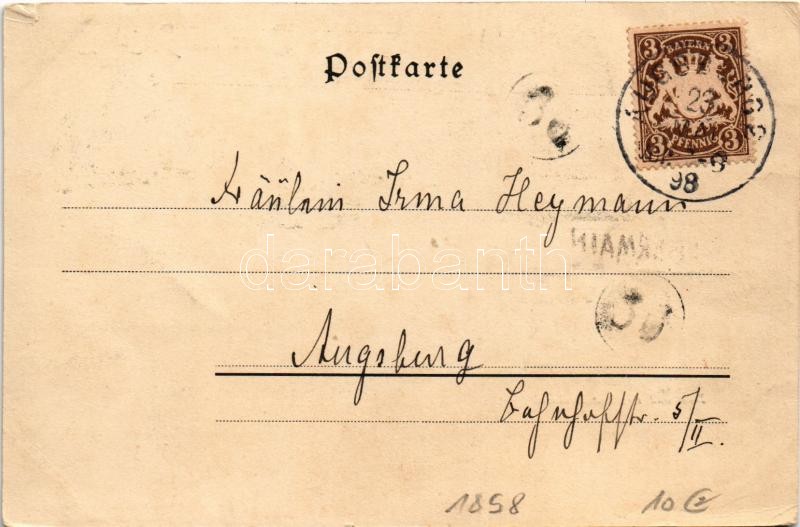 Postkarte
3 BAYERN 3
3 PFENNIG 3
AUGSBURG 2
23
MAI
98
Fräulein Irma Heymann
darabanth
Augsburg
Bahnhofstr. 5/II.
1898 10